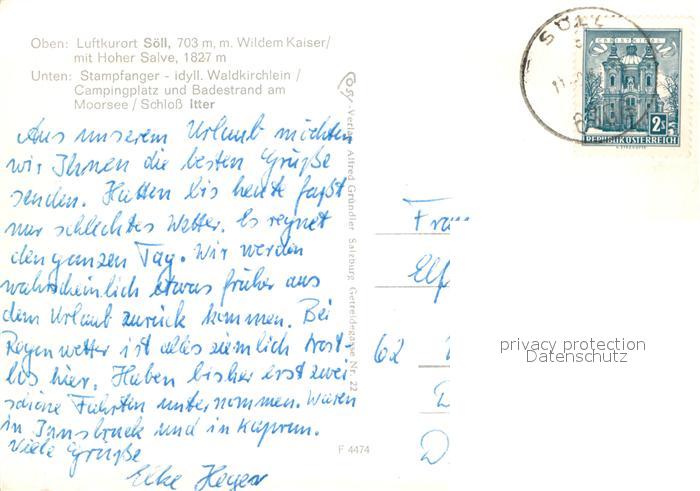 Oben: Luftkurort Söll, 703 m, m. Wildem Kaiser/
mit Hoher Salve, 1827 m
Unten: Stampfanger - idyll. Waldkirchlein /
Campingplatz und Badestrand am
Moorsee / Schloß Itter
Aus unserem Urlaub möchten
wir Ihnen die besten Grüße
senden. Hatten bis heute faßt
nur schlechtes Wetter. Es regnet
den ganzen Tag. Wir werden
wahrscheinlich etwas früher aus
dem Urlaub zurück kommen. Bei
Regenwetter ist alles ziemlich trost-
los hier. Haben bisher erst zwei
schöne Fahrten unternommen. Waren
in Innsbruck und in Kaprun.
Viele Grüße
Elke Heyer
Cosy-Verlag Alfred Gründler Salzburg, Getreidegasse Nr. 22
F 4474
SÖLL
2S
REPUBLIK ÖSTERREICH
Frau
Elf
62
D
privacy protection
Datenschutz